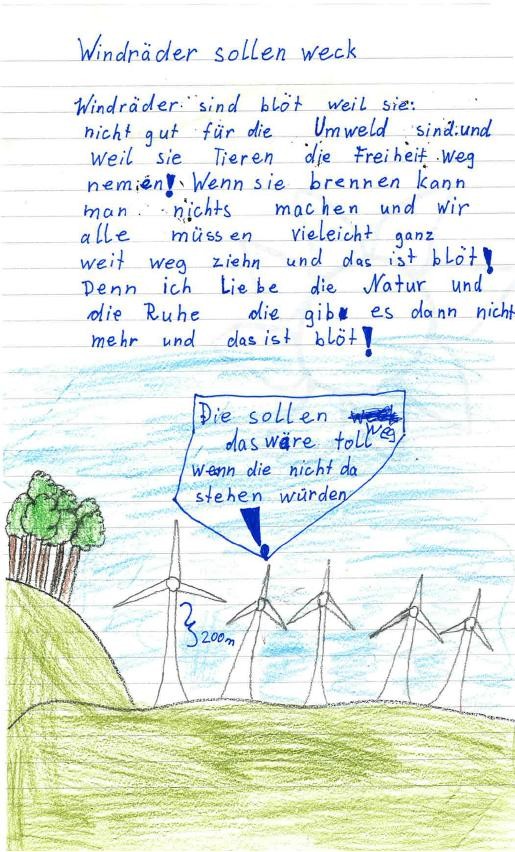 Windräder sollen weck
Windräder sind blöt weil sie:
nicht gut für die Umweld sind und
weil sie Tieren die Freiheit weg
nemien! Wenn sie brennen kann
man nichts machen und wir
alle müssen vieleicht ganz
weit weg ziehn und das ist blöt!
Denn ich Liebe die Natur und
die Ruhe die gibt es dann nicht
mehr und das ist blöt!
Die sollen weg
das wäre toll
wenn die nicht da
stehen würden
!
200m